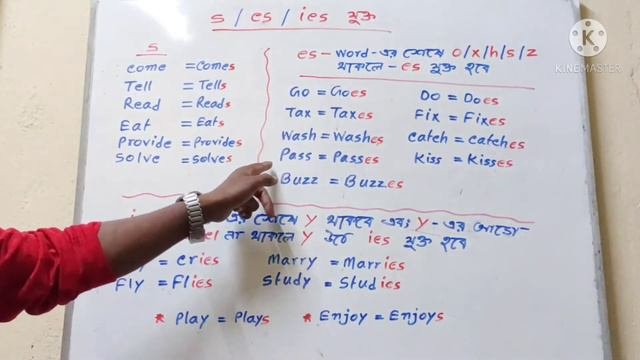 s / es / ies যুক্ত
s
come = comes
Tell = Tells
Read = Reads
Eat = Eats
Provide = Provides
Solve = Solves
es - word-এর শেষে o/x/h/s/z
থাকলে - es যুক্ত হবে
Go = Goes
Do = Does
Tax = Taxes
Fix = Fixes
Wash = Washes
Catch = Catches
Pass = Passes
Kiss = Kisses
Buzz = Buzzes
শেষে y থাকবে এবং y-এর আগে-
না থাকলে y উঠে ies যুক্ত হবে
= cries
Marry = Marries
Fly = Flies
Study = Studies
* Play = Plays
* Enjoy = Enjoys
K
KINEMASTER